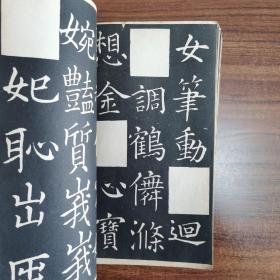 女筆動迴
調鶴儛滌
想金心寶
婉豔質峩峩
妃恥出